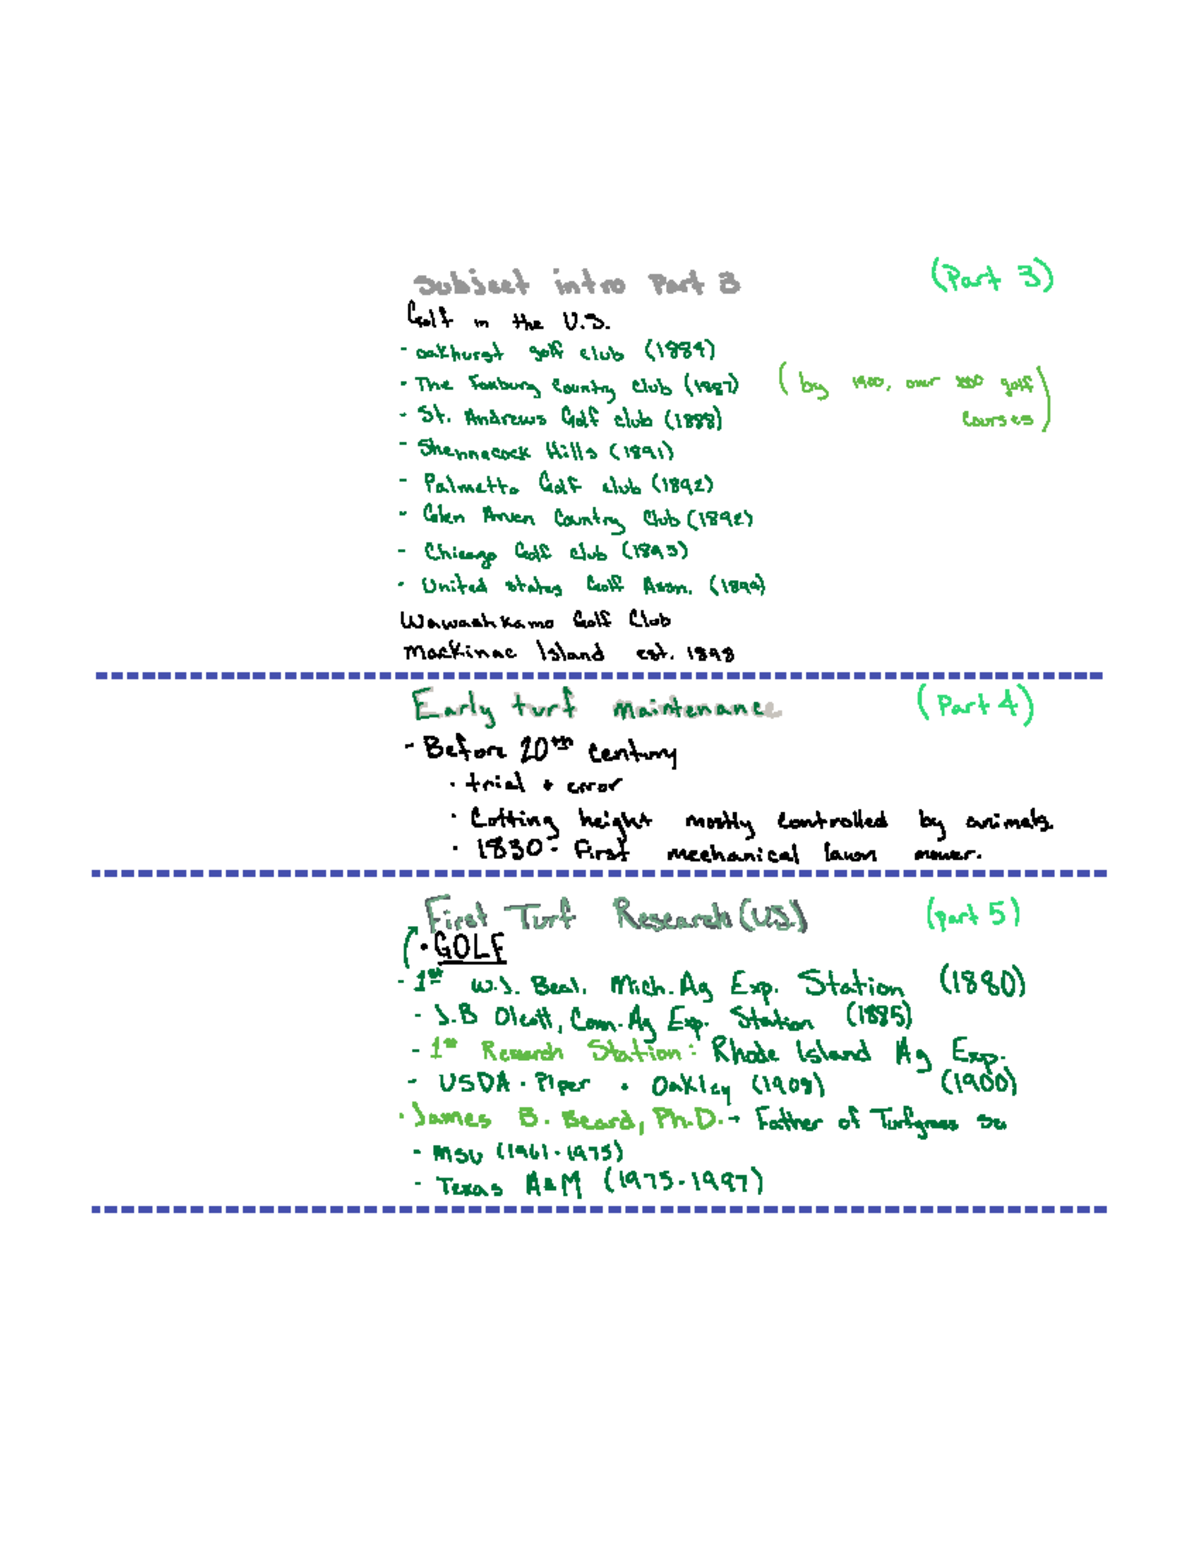 Subject intro Part 3 (Part 3)
Golf in the U.S.
- oakhurst golf club (1884)
- The Foxburg Country Club (1887) (by 1900, over golf
- St. Andrews Golf club (1888) courses)
- Shennecock Hills (1891)
- Palmetto Golf club (1892)
- Glen Arven Country Club (1892)
- Chicago Golf club (1893)
- United states Golf Assn. (1894)
Wawashkamo Golf Club
Mackinac Island est. 1898
Early turf maintenance (Part 4)
- Before 20th century
• trial + error
• Cutting height mostly controlled by animals.
• 1830 - First mechanical lawn mower.
First Turf Research (US) (part 5)
• GOLF
- 1st W.J. Beal. Mich. Ag Exp. Station (1880)
- J.B Olcott, Conn. Ag Exp. Station (1885)
- 1st Research Station: Rhode Island Ag Exp.
- USDA - Piper + Oakley (1908) (1900)
• James B. Beard, Ph.D. → Father of Turfgrass Sci
- MSU (1961-1975)
- Texas A&M (1975-1997)